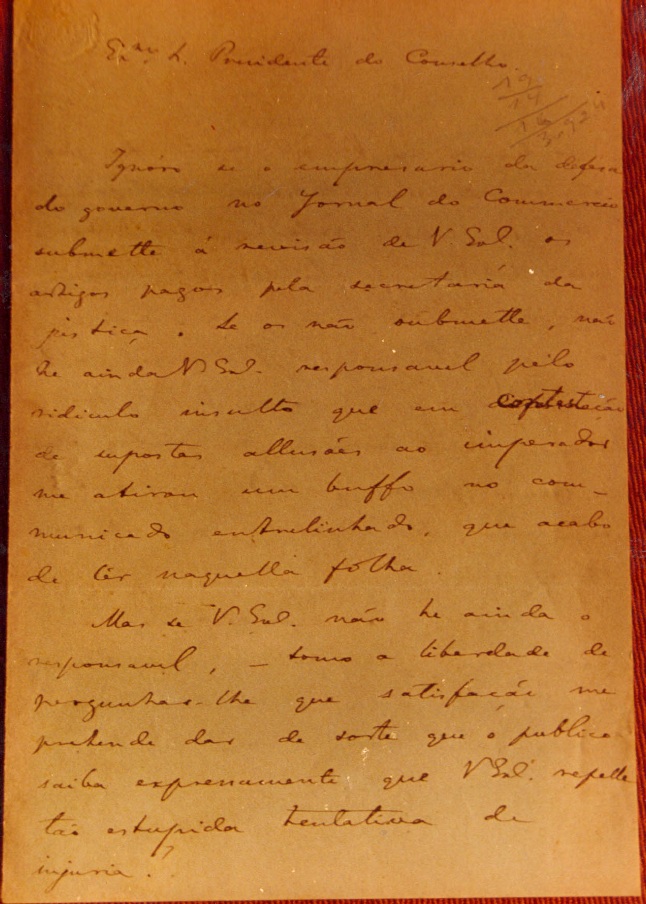 Ex.mo S. Presidente do Conselho.
19
14
16
3.924
Ignóro se o empresario da defesa
do governo no Jornal do Commercio
submette á revisão de V. Exl. os
artigos pagos pela secretaria da
justiça. Se os não submette, não
he ainda V Exl. responsavel pelo
ridiculo insulto que em
de supostas allusões ao imperador
me atirou um buffo no com-
municado entrelinhado, que acabo
de lêr naquella folha.
Mas se V. Exl. não he ainda o
responsavel, – tomo a liberdade de
perguntar-lhe que satisfação me
pretende dar de sorte que o publico
saiba expressamente que V Exl. repelle
tão estupida tentativa de
injuria.